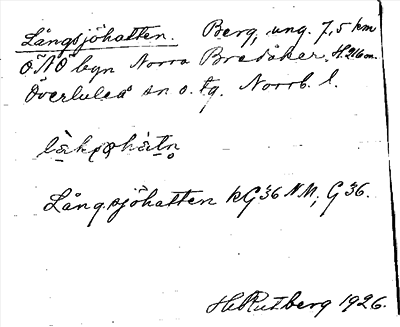 Långsjöhatten. Berg, ung. 7,5 km
ÖNÖ byn Norra Bredåker, H. 216 m.
Överluleå sn o. tg. Norrb. l.
Långsjöhatten kG36 NM, G36.
H. Rutberg 1926.